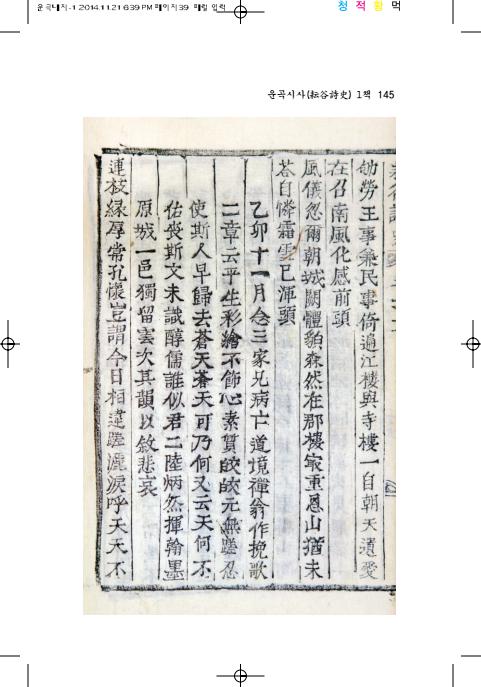 운곡내지-1 2014.11.21 6:39 PM 페이지39 매킬 입력
청 적 황 먹
운곡시사(耘谷詩史) 1책 145
劬勞王事兼民事倚遍江樓與寺樓一自朝天遺愛
在召南風化感前頭
風儀忽爾朝城闕體貌森然在郡樓㝡重恩山猶未
荅自憐霜雪已渾頭
乙卯十一月念三家兄病亡道境禪翁作挽歌
二章云平生彩繪不飾心素質皎皎元無瑕忍
使斯人早歸去蒼天蒼天可乃何又云天何不
佑喪斯文未識醇儒誰似君二陸炳然揮翰墨
原城一邑獨留雲次其韻以敘悲哀
連枝緣厚常孔懷豈謂今日相違瑳灑淚呼天天不